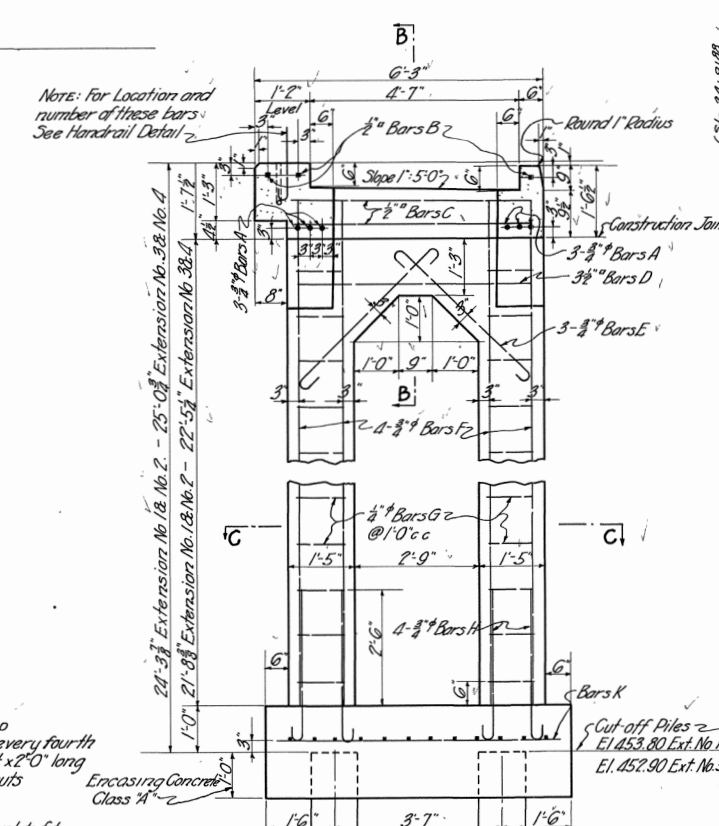 B
6'-3"
1'-2"
4'-7"
6"
Level
NOTE: For Location and
number of these bars
See Handrail Detail
3"
6"
3"
½"▫ Bars B
6"
Round 1" Radius
1"
1"
3"
1"
3"
1"
6"
Slope 1":5'-0"
6"
9"
1'-7½"
1'-3"
4½"
3"
½"▫ Bars C
3"
9½"
1'-6½"
Construction Join
3-¾"ᶲ Bars A
3" 3" 3"
3-¾"ᶲ Bars A
1'-3"
3½"▫ Bars D
8"
3"
3"
1'-0"
3-¾"ᶲ Bars E
1'-0"
9"
1'-0"
3"
3"
B
3"
3"
4-¾"ᶲ Bars F
24'-3⅞" Extension No.1 & No.2. - 25'-0¾" Extension No.3 & No.4
21'-8⅜" Extension No.1 & No.2 - 22'-5¼" Extension No 3 & 4
¼"ᶲ Bars G
@ 1'-0" c c
C
C
1'-5"
2'-9"
1'-5"
2'-6"
4-¾"ᶲ Bars H
6"
6"
6"
Bars K
1'-0"
3"
1'-0"
Cut-off Piles
El. 453.80 Ext. No.
El. 452.90 Ext. No.
every fourth
x 2'-0" long
uts
Encasing Concrete
Class "A"
1'-6"
3'-7"
1'-6"